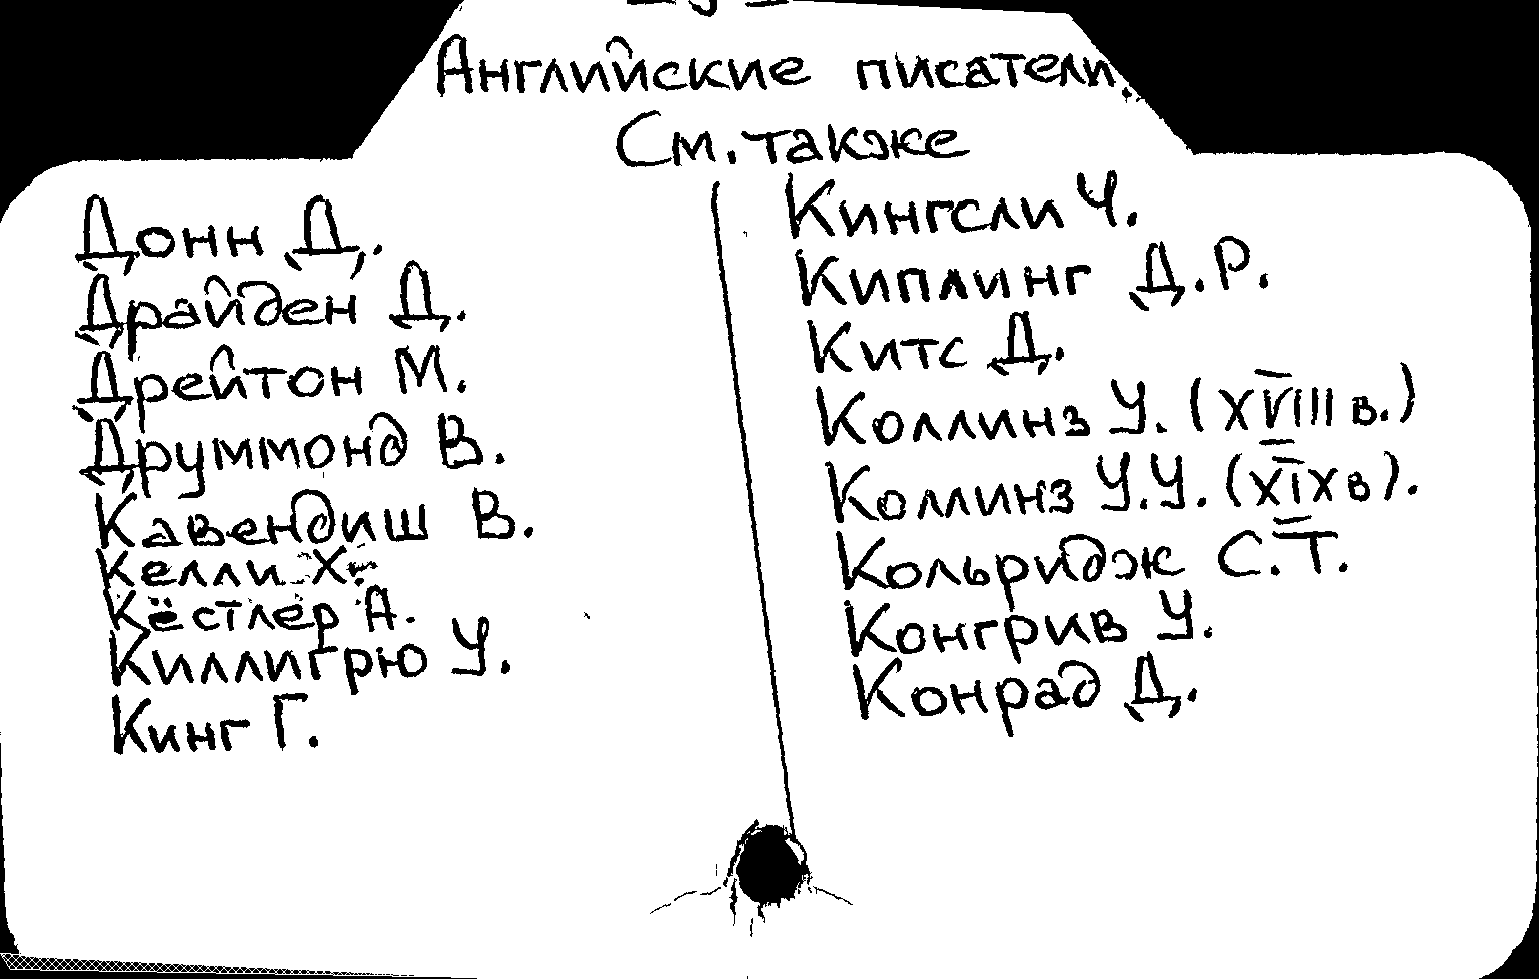 Английские писатели.
См. также
Донн Д.
Драйден Д.
Дрейтон М.
Друммонд В.
Кавендиш В.
Келли Х.
Кёстлер А.
Киллигрю У.
Кинг Г.
Кингсли Ч.
Киплинг Д.Р.
Китс Д.
Коллинз У. (XVIII в.)
Коллинз У.У. (XIX в).
Кольридж С.Т.
Конгрив У.
Конрад Д.